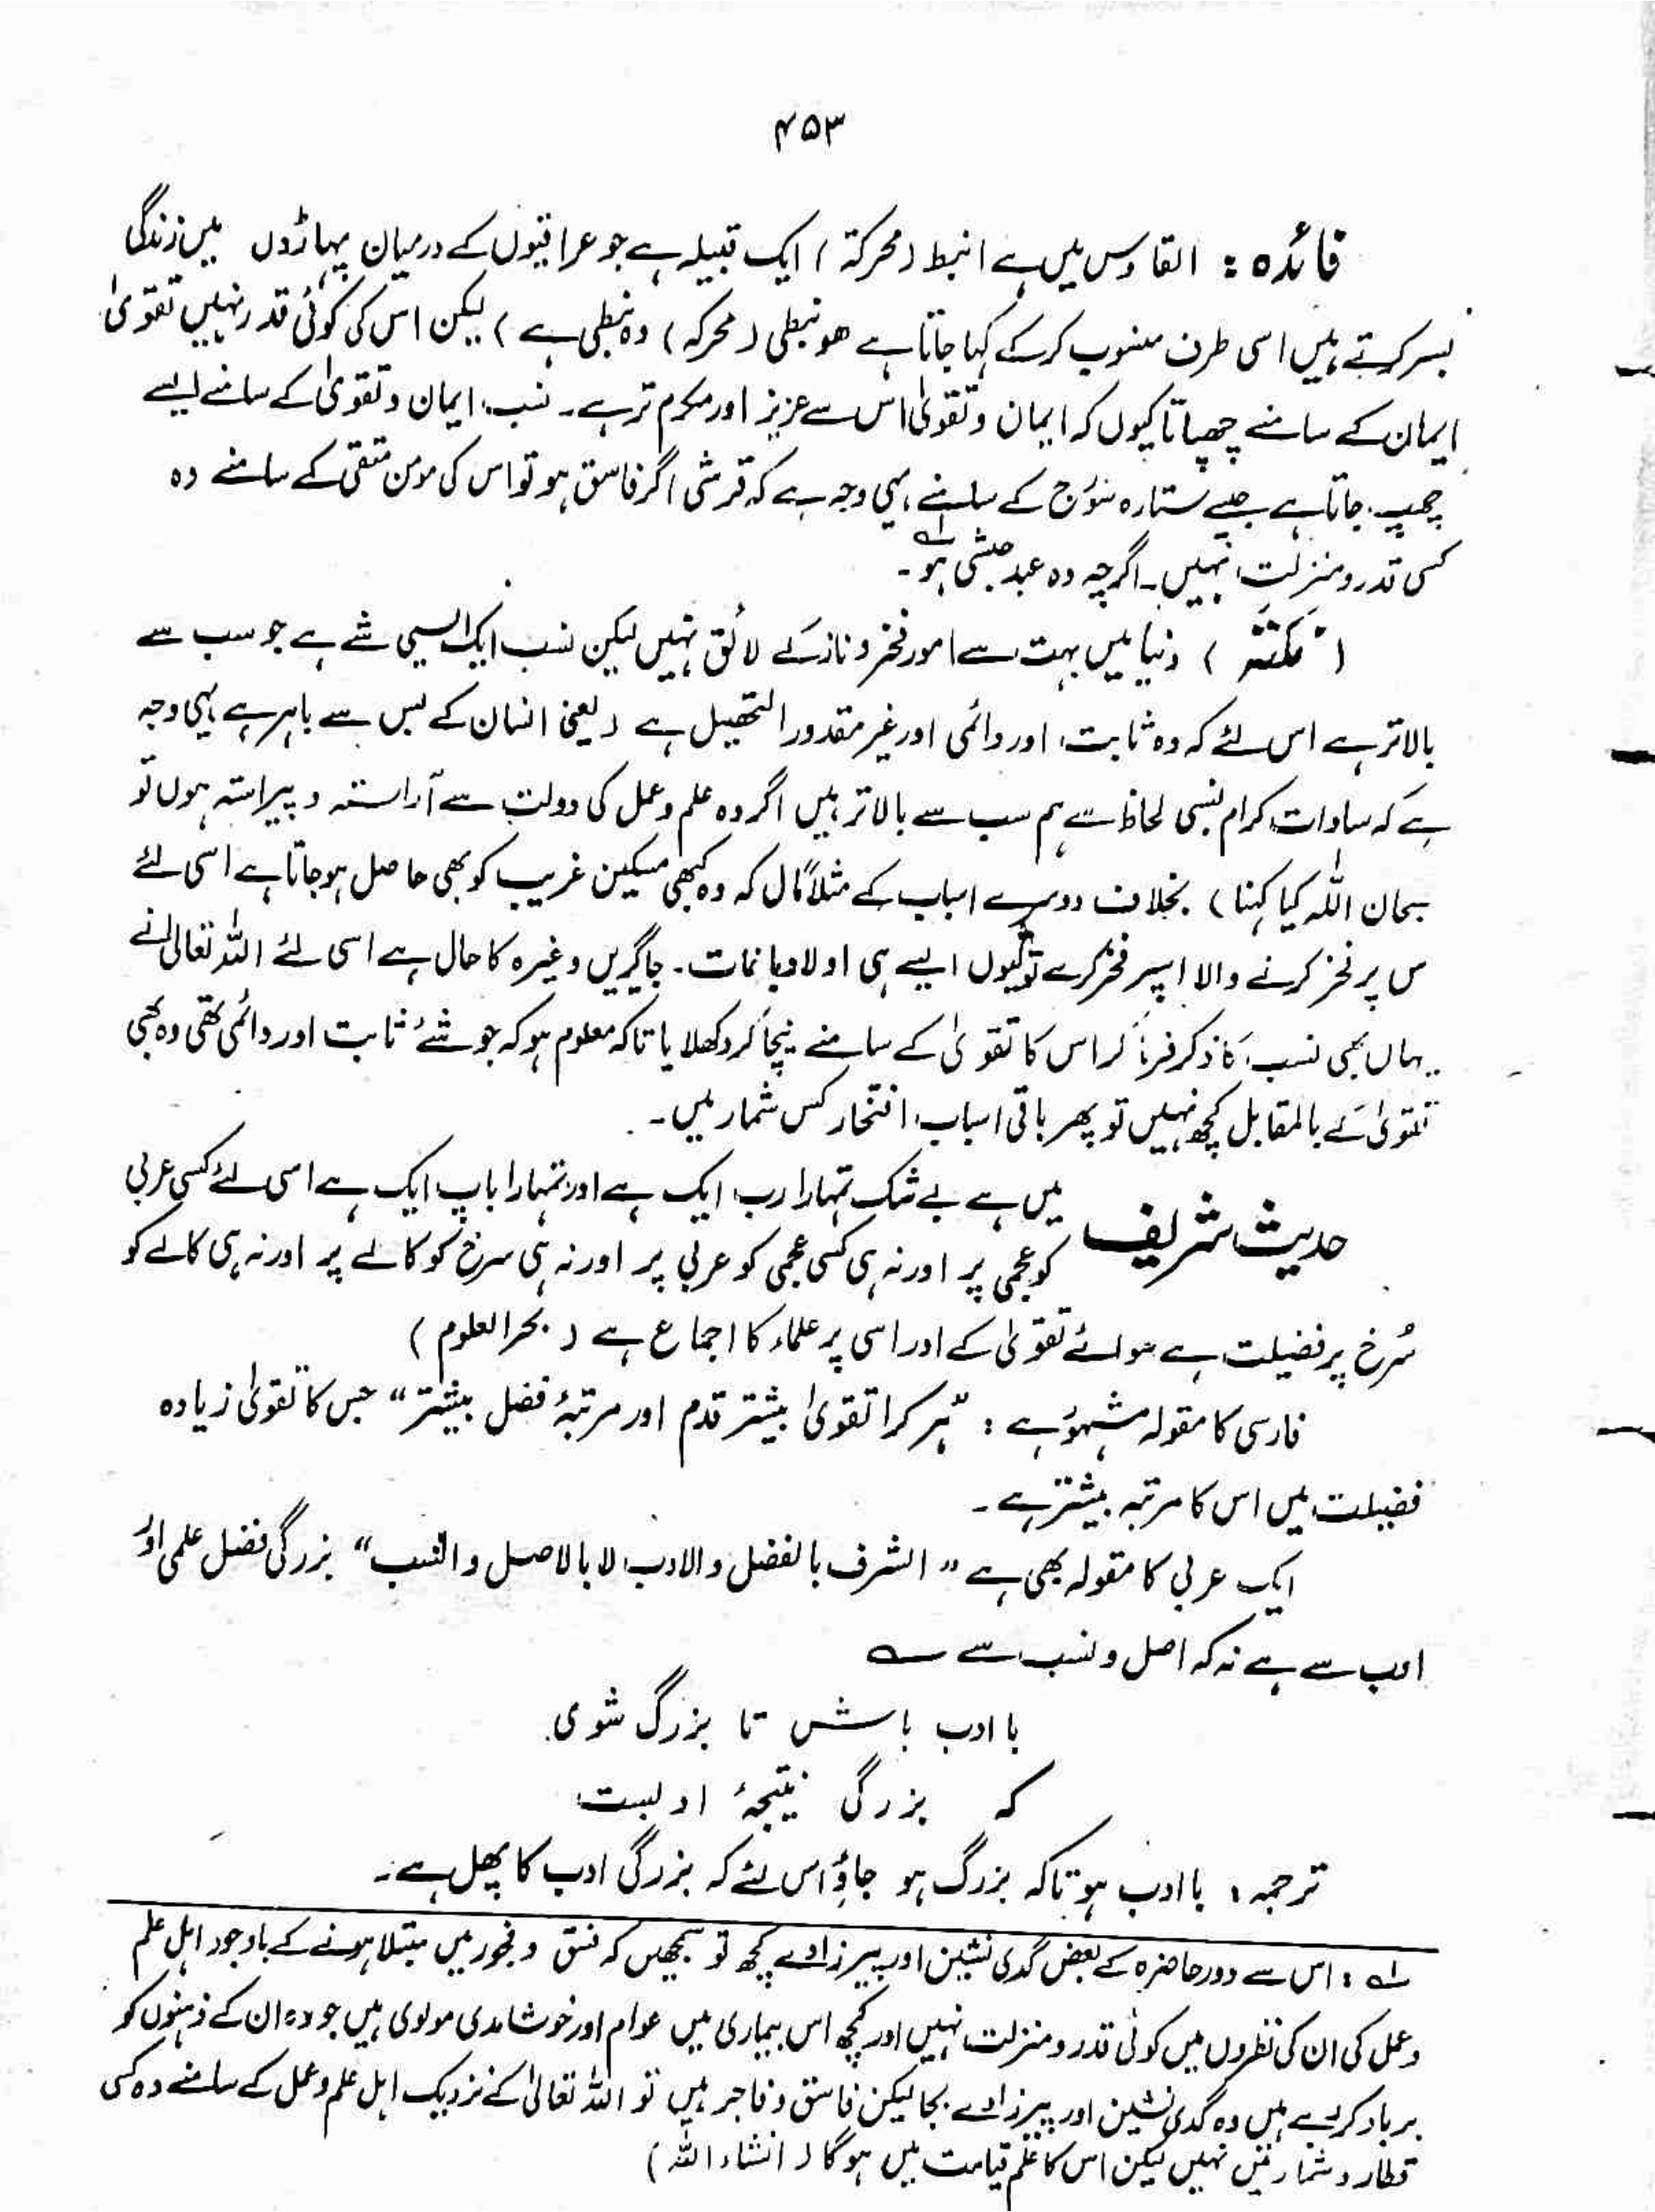 ۴۵۳
فائدہ : القاموس میں ہے انبط (محرکۃ) ایک قبیلہ ہے جو عراقیوں کے درمیان پہاڑوں میں زندگی
بسر کرتے ہیں اسی طرف منسوب کرکے کہا جاتا ہے ھو نبطی (محرکہ) وہ نبطی ہے) لیکن اس کی کوئی قدر نہیں تقویٰ
ایمان کے سامنے چھپاتا کیوں کہ ایمان و تقویٰ اس سے عزیز اور مکرم تر ہے۔ نسب، ایمان و تقویٰ کے سامنے ایسے
چھپ جاتا ہے جیسے ستارہ سورج کے سامنے، یہی وجہ ہے کہ قرشی اگر فاسق ہو تو اس کی مومن متقی کے سامنے وہ
کسی قدر و منزلت نہیں۔ اگرچہ وہ عبد حبشی ہو ؎۱۔
(نکتہ) دنیا میں بہت سے امور فخر و ناز کے لائق نہیں لیکن نسب ایک ایسی شے ہے جو سب سے
بالاتر ہے اس لئے کہ وہ ثابت، اور دائمی اور غیر مقدور التحصیل ہے (یعنی انسان کے بس سے باہر ہے یہی وجہ
ہے کہ سادات کرام نسبی لحاظ سے ہم سب سے بالاتر ہیں اگر وہ علم و عمل کی دولت سے آراستہ و پیراستہ ہوں تو
سبحان اللہ کیا کہنا) بخلاف دوسرے اسباب کے مثلاً مال کہ وہ کبھی مسکین غریب کو بھی حاصل ہو جاتا ہے اسی لئے
س پر فخر کرنے والا اسپر فخر کرے تو کیوں ایسے ہی اولاد باغات۔ جاگیریں وغیرہ کا حال ہے اسی لئے اللہ تعالیٰ نے
یہاں بھی نسب کا ذکر فرما کر اس کا تقویٰ کے سامنے نیچا کر دکھلایا تاکہ معلوم ہو کہ جو شئے ثابت اور دائمی تھی وہ بھی
تقویٰ کے بالمقابل کچھ نہیں تو پھر باقی اسباب افتخار کس شمار میں۔
حدیث شریف میں ہے بے شک تمہارا رب ایک ہے اور تمہارا باپ ایک ہے اسی لئے کسی عربی
کو عجمی پر اور نہ ہی کسی عجمی کو عربی پر اور نہ ہی سرخ کو کالے پر اور نہ ہی کالے کو
سُرخ پر فضیلت ہے سوائے تقویٰ کے اور اسی پر علماء کا اجماع ہے (بحر العلوم)
فارسی کا مقولہ مشہور ہے : "ہر کرا تقویٰ بیشتر قدم اور مرتبۂ فضل بیشتر" جس کا تقویٰ زیادہ
فضیلت میں اس کا مرتبہ بیشتر ہے۔
ایک عربی کا مقولہ بھی ہے "الشرف بالفضل والادب لا بالاصل والنسب" بزرگی فضل علمی اور
ادب سے ہے نہ کہ اصل و نسب سے ؎
با ادب باش تا بزرگ شوی
کہ بزرگی نتیجۂ ادبست
ترجمہ : باادب ہو تاکہ بزرگ ہو جاؤ اس لئے کہ بزرگی ادب کا پھل ہے۔
؎۱ : اس سے دور حاضرہ کے بعض گدی نشین اور پیرزادے کچھ تو سمجھیں کہ فسق و فجور میں مبتلا ہونے کے باوجود اہل علم
و عمل کی ان کی نظروں میں کوئی قدر و منزلت نہیں اور کچھ اس بیماری میں عوام اور خوشامدی مولوی ہیں جو وہ ان کے ذہنوں کو
برباد کررہے ہیں وہ گدی نشین اور پیرزادے بجا لیکن فاسق و فاجر ہیں تو اللہ تعالیٰ کے نزدیک اہل علم و عمل کے سامنے وہ کسی
قطار و شمار میں نہیں لیکن اس کا علم قیامت میں ہوگا (انشاء اللہ)